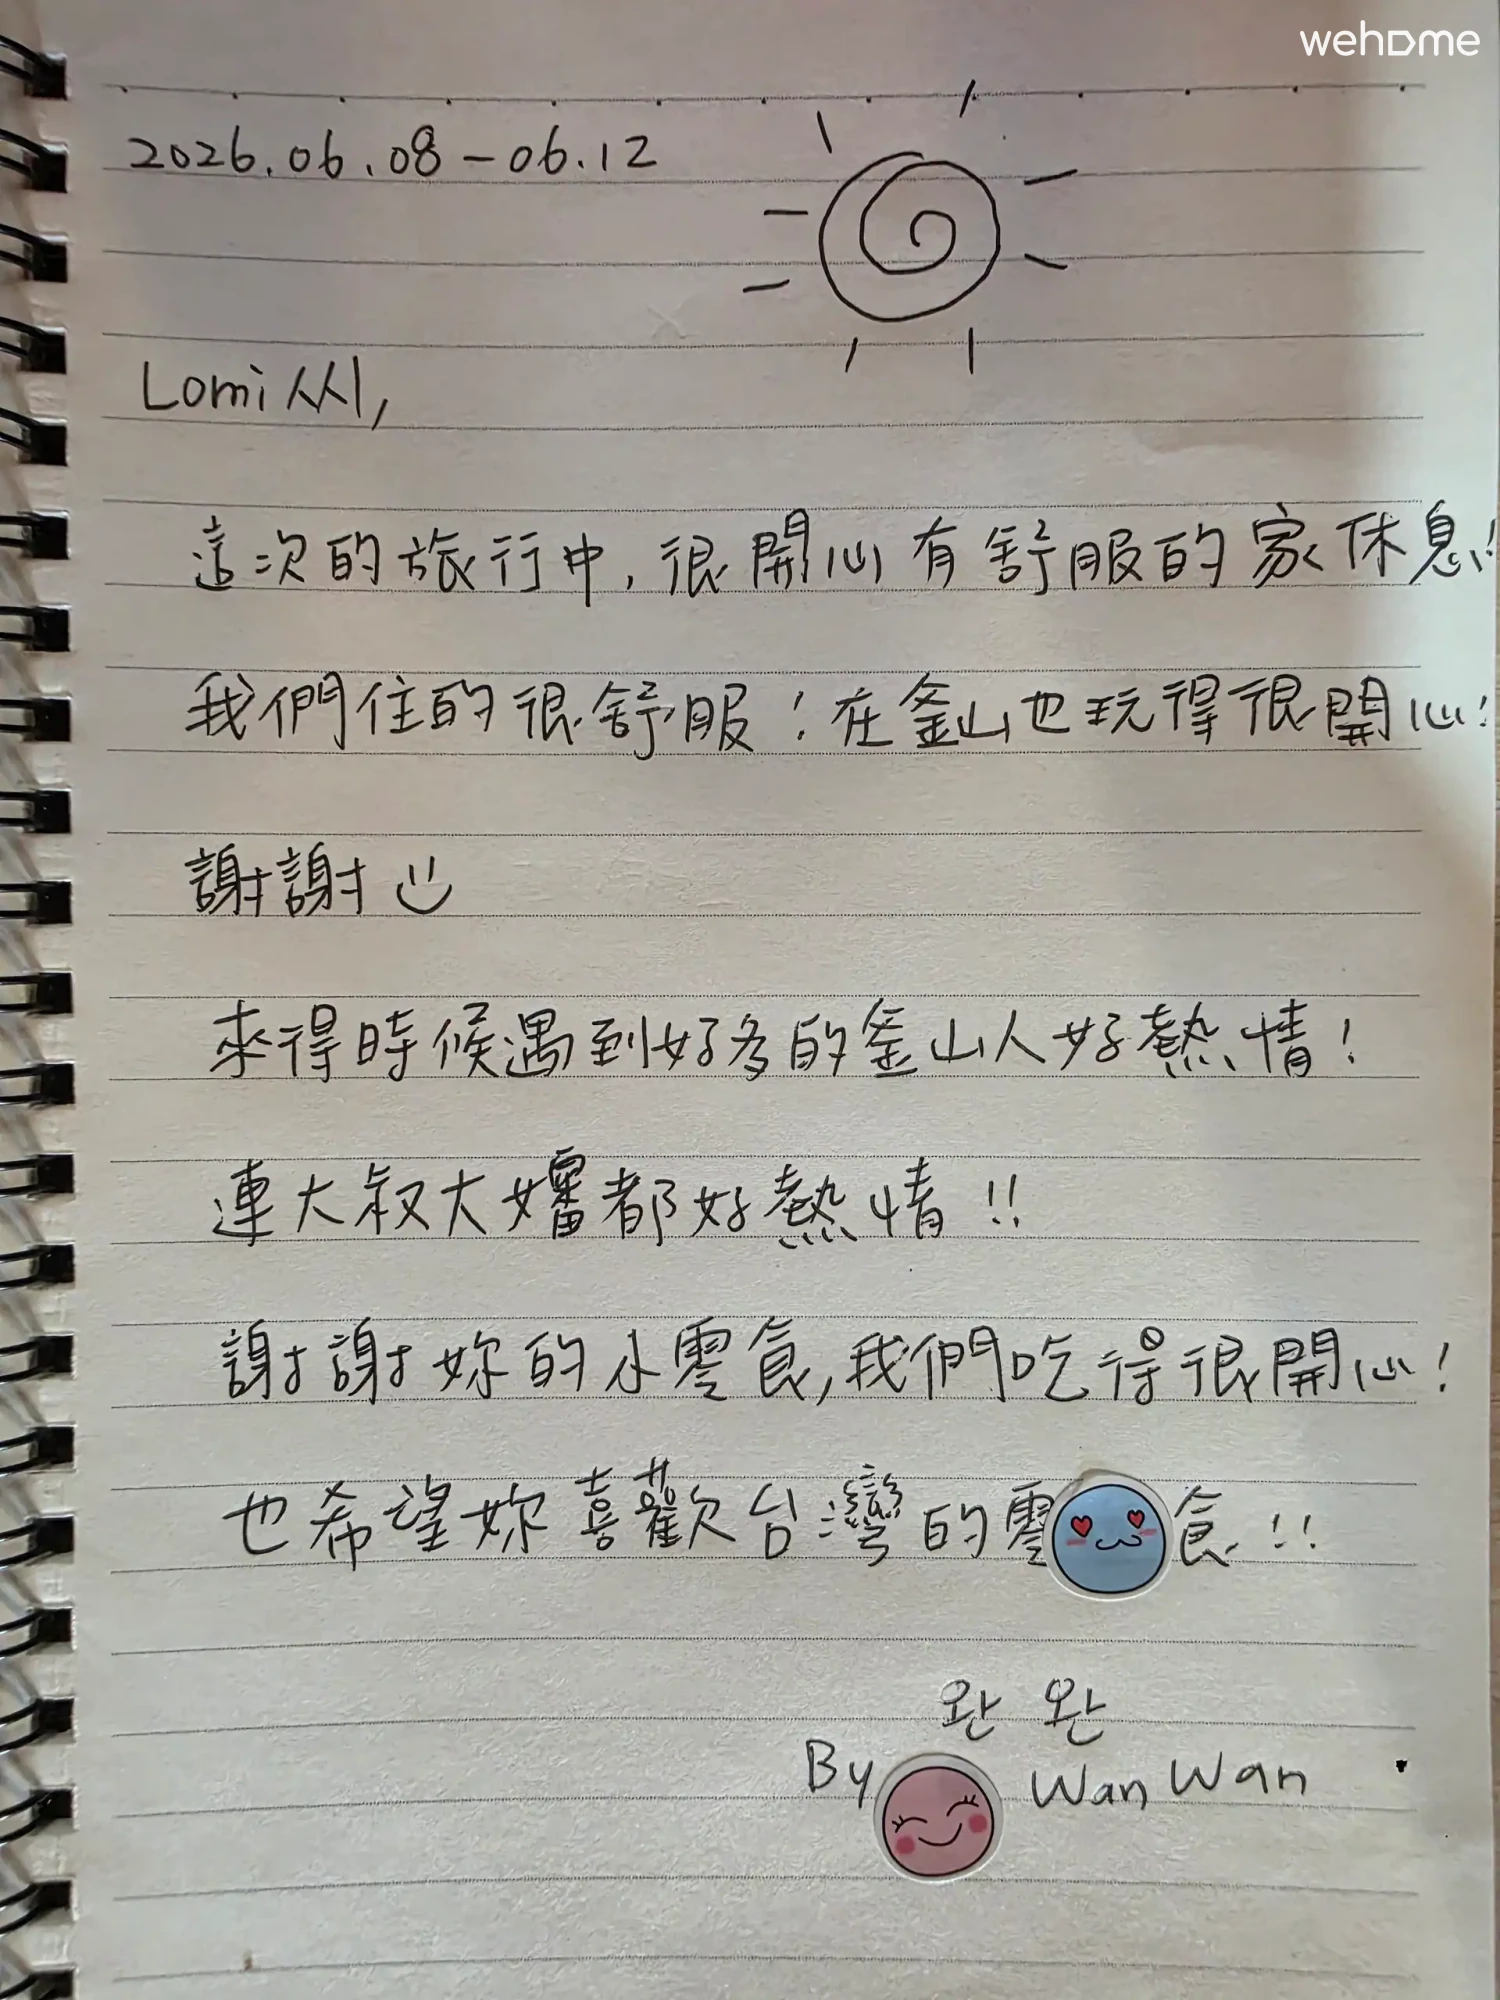 wehome
2026.06.08 - 06.12
Lomi 씨,
這次的旅行中，很開心有舒服的家休息！
我們住的很舒服！在釜山也玩得很開心！
謝謝
來得時候遇到好多的釜山人好熱情！
連大叔大嬸都好熱情！！
謝謝妳的小零食，我們吃得很開心！
也希望妳喜歡台灣的零食！！
완 완
By Wan Wan